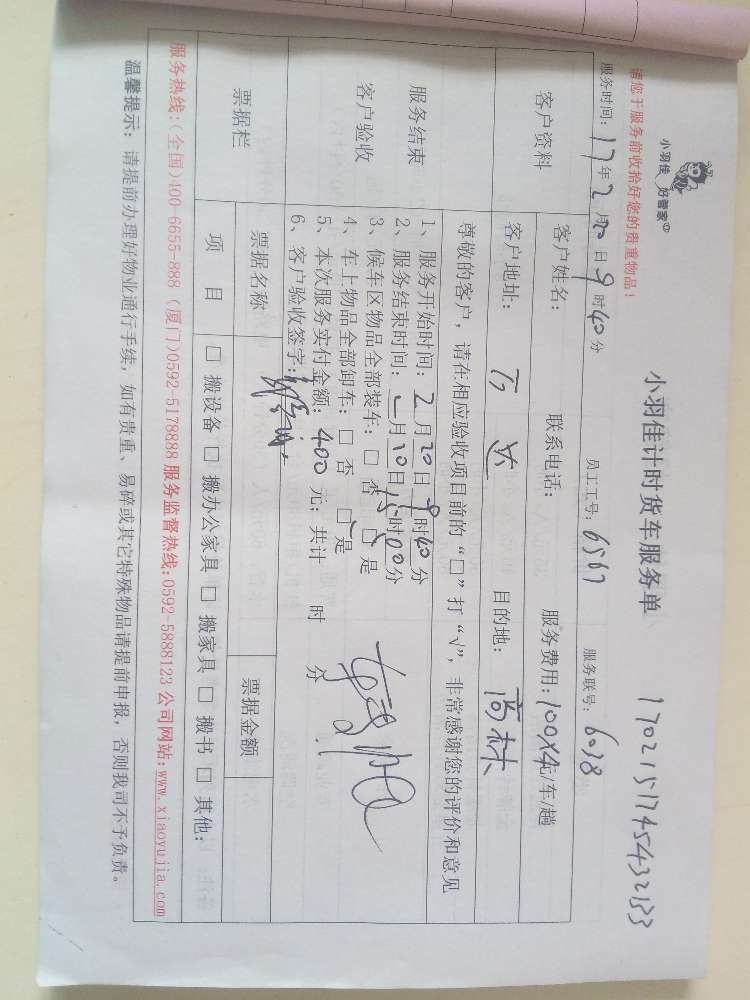 小羽佳 好管家
小羽佳计时货车服务单 17021517454432133
请您于服务前收拾好您的贵重物品!
服务时间: 17年2月20日9时40分 员工工号: 6567 服务联号: 6038
客户资料 客户姓名: 联系电话: 服务费用: 100X4元/车/趟
客户地址: 万达 目的地: 高林
尊敬的客户,请在相应验收项目前的“□”打“√”,非常感谢您的评价和意见
服务结束
客户验收
1、服务开始时间: 2月20日9时40分
2、服务结束时间: 2月20日15时00分
3、候车区物品全部装车: □ 否 □ 是
4、车上物品全部卸车: □ 否 □ 是
5、本次服务实付金额: 400元; 共计 时 分
6、客户验收签字:
票据栏 票据名称 票据金额
项 目 □ 搬设备 □ 搬办公家具 □ 搬家具 □ 搬书 □ 其他:
服务热线:(全国)400-6655-888 (厦门)0592-5178888 服务监督热线:0592-5888123 公司网站:www.xiaoyujia.com
温馨提示: 请提前办理好物业通行手续, 如有贵重、易碎或其它特殊物品请提前申报, 否则我司不予负责。